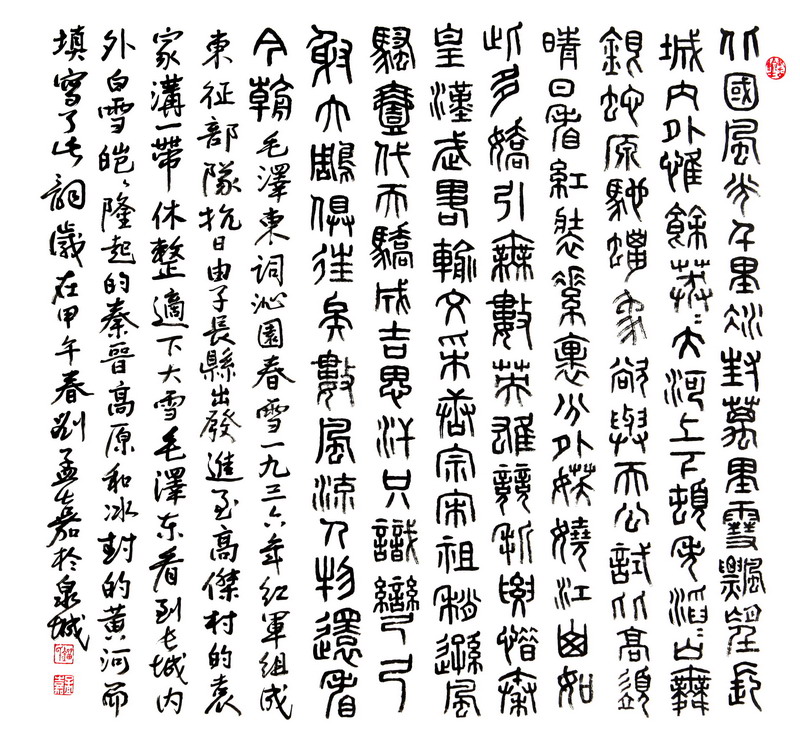 北國風光千里冰封萬里雪飄望長
城內外惟餘莽〻大河上下頓失滔〻山舞
銀蛇原馳蠟象欲與天公試比高須
晴日看紅裝素裹分外妖嬈江山如
此多嬌引無數英雄競折腰惜秦
皇漢武略輸文采唐宗宋祖稍遜風
騷壹代天驕成吉思汗只識彎弓
射大鵰俱往矣數風流人物還看
今朝 毛澤東詞沁園春雪一九三六年紅軍組成
東征部隊抗日由子長縣出發進至高傑村的袁
家溝一帶休整適下大雪毛澤东看到长城内
外白雪皚〻隆起的秦晉高原和冰封的黃河而
填寫了此詞歲在甲午春劉孟嘉於泉城